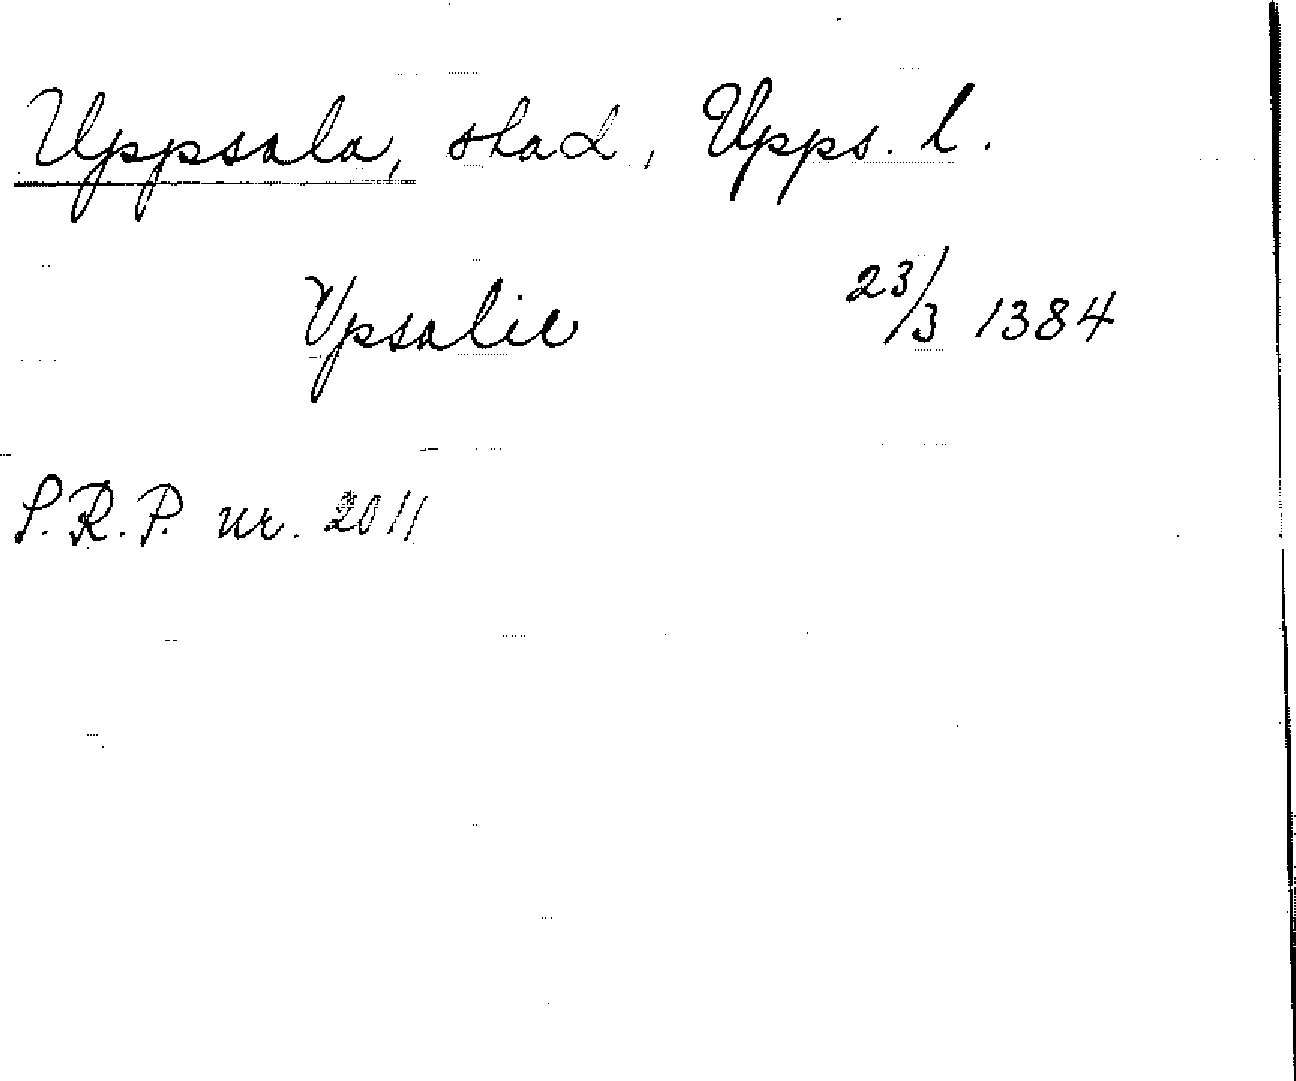 Uppsala, stad, Upps. l.
Vpsalie 23/3 1384
S.R.P. nr. 2011